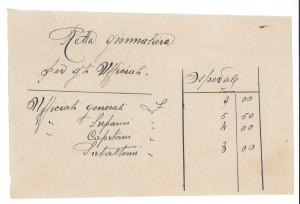 Retta giornaliera
per gli Ufficiali.
Ospedale
Ufficiali generali £ 9 00
" Superiori " 5 50
" Capitani " 4 00
" Subalterni " 3 00